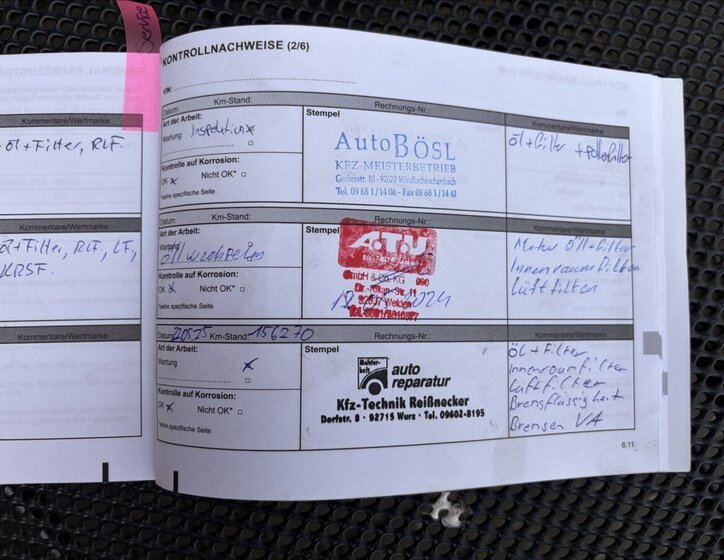 Service
Kommentare/Wertmarke
öl+Filter, RLF.
Kommentare/Wertmarke
öl+Filter, RLF, LF,
KRSF.
Kommentare/Wertmarke
KONTROLLNACHWEISE (2/6)
VIN:
Datum: Km-Stand: Rechnungs-Nr.: Kommentare/Wertmarke
Art der Arbeit:
Wartung Inspektion x
Kontrolle auf Korrosion:
OK x Nicht OK*
*siehe spezifische Seite
Stempel
Auto BÖSL
KFZ-MEISTERBETRIEB
Gerberstr. 10 - 92670 Windischeschenbach
Tel. 09 68 1/14 06 - Fax 09 68 1/14 41
öl+filter + Pollenfilter
Datum: Km-Stand: Rechnungs-Nr.: Kommentare/Wertmarke
Art der Arbeit:
Wartung
Kontrolle auf Korrosion:
OK x Nicht OK*
*siehe spezifische Seite
Stempel
A.T.U
GmbH & Co. KG 080
Dr.-Kilian-Str. 11
92637 Weiden
2024
Motor Öll+filter
Innenraumfilter
Luftfilter
Datum: 22.05.25 Km-Stand: 156270 Rechnungs-Nr.: Kommentare/Wertmarke
Art der Arbeit:
Wartung x
Kontrolle auf Korrosion:
OK x Nicht OK*
*siehe spezifische Seite
Stempel
Meister-
haft
auto
reparatur
Kfz-Technik Reißnecker
Dorfstr. 8 · 92715 Wurz · Tel. 09602-8195
Öl + Filter
Innenraumfilter
Luftfilter
Bremsflüssigkeit
Bremsen VA
6.11